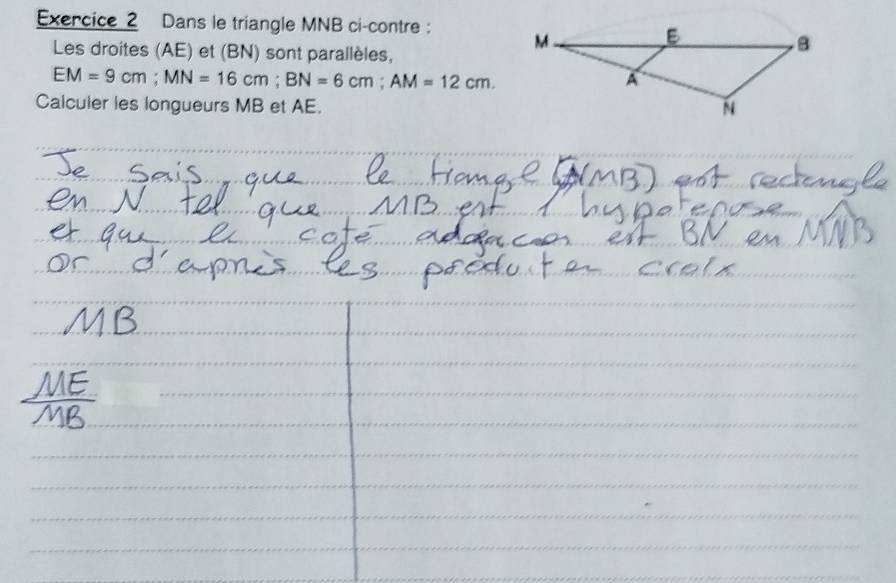 Exercice 2 Dans le triangle MNB ci-contre :
Les droites (AE) et (BN) sont parallèles,
EM = 9 cm ; MN = 16 cm ; BN = 6 cm ; AM = 12 cm.
Calculer les longueurs MB et AE.
M
E
B
A
N
Je sais que le triangle (NMB) est rectangle
en N tel que MB est l'hypotenuse
et que le coté adjacen est BN en MNB
or d'apnès les produit en croix
MB
ME
MB